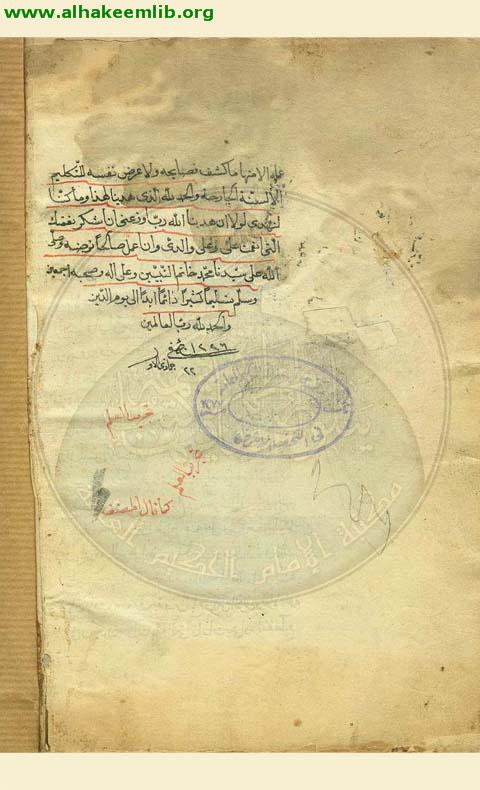 www.alhakeemlib.org
عليه الا منها ما كشف فضايحه ولا عرض نفسه للتكليم
الألسنة الجارحة والحمد لله الذي هدينا لهذا وما كنا
لنهتدي لولا ان هدينا الله رب اوزعني ان اشكر نعمتك
التي انعمت علي وعلى والدي وان اعمل صالحا ترضيه وصلى
الله على سيدنا محمد خاتم النبيين وعلى اله وصحبه اجمعين
وسلم تسليما كثيرا دائما ابدا الى يوم الدين
والحمد لله رب العالمين
١٢٩٦
٢٢ جمادى الاول
غريب العلم
غريب العلم
كما قال المصنف
مكتبة الإمام الحكيم العامة